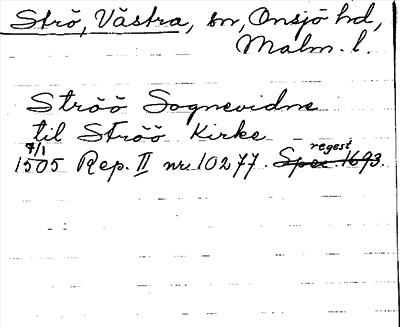 Strö, Västra, sn, Onsjö hd,
Malm. l.
Ströö Sognevidne
til Ströö Kirke
7/1 regest
1505 Rep. II nr. 10277. Spec 1693.